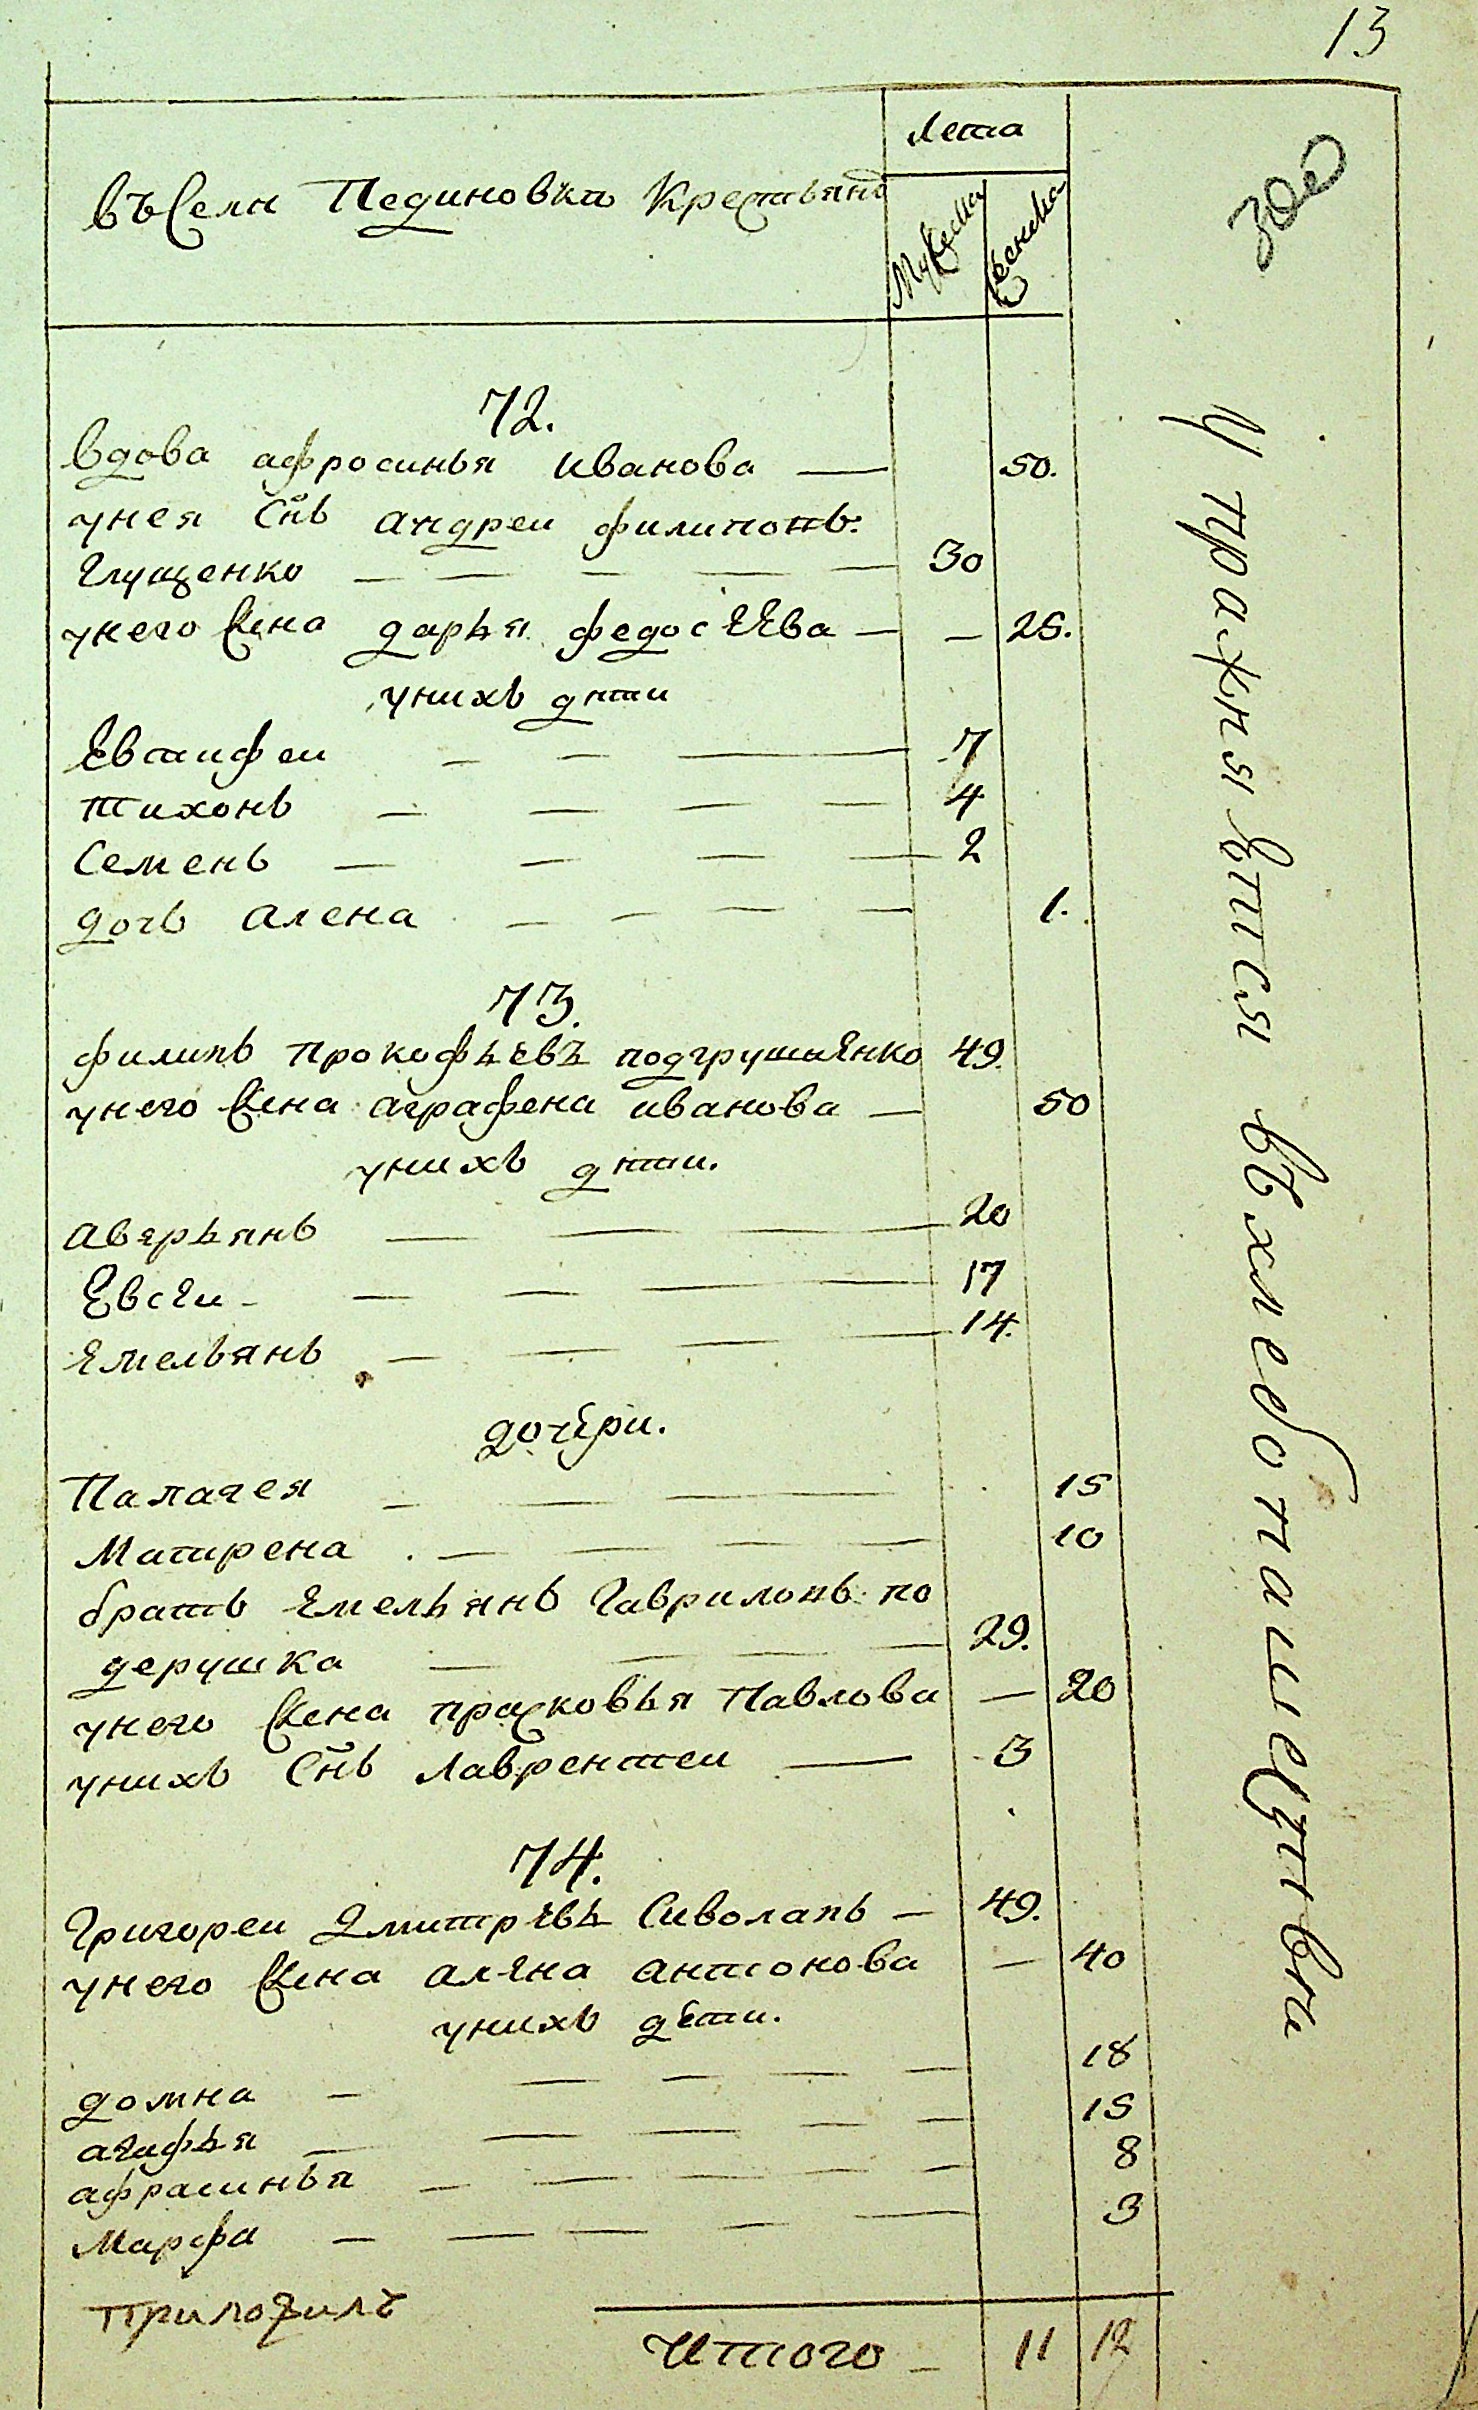 13
Лета
въ Селѣ Пединовкѣ Крестьянъ
Мужеска
Женска
72.
Вдова афросинья иванова — 50.
унея Сн҃ъ андреи филиповъ.
Глущенко — 30
унего Жена дарья федосѣева — — 25.
унихъ дѣти
Евтифеи — 7
тихонъ — 4
Семенъ — 2
дочь алена — 1.
73.
филипъ прокофьевъ подгрушненко 49.
унего Жена аграфена иванова — 50
унихъ дѣти.
аверьянъ — 20
Евсеи — 17
Емельянъ — 14.
дочери.
Палагея — 15
Матрена — 10
братъ Емельянъ Гавриловъ по
дерушка — 29.
унего Жена прасковья Павлова — 20
унихъ Сн҃ъ Лаврентеи — 3
74.
Григореи Дмитревъ Сиволапъ — 49.
унего Жена алена антонова — 40
унихъ дети.
домна — 18
агафья — 15
афрасинья — 8
Марфа — 3
приложилъ
Итого — 11 12
упражняѣтися въ хлебопашествѣ